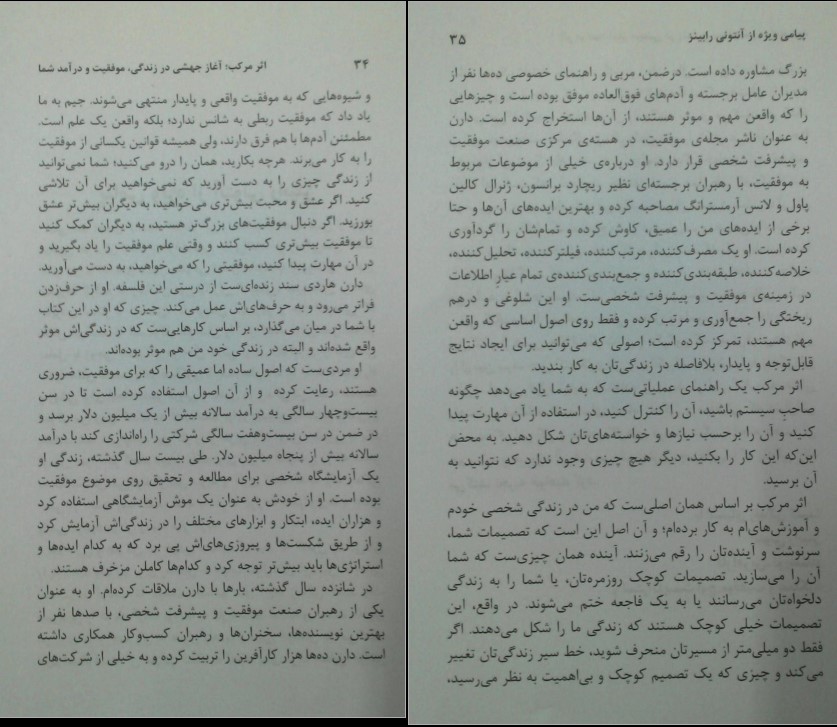 ۳۴ اثر مرکب؛ آغاز جهشی در زندگی، موفقیت و درآمد شما
و شیوه‌هایی که به موفقیت واقعی و پایدار منتهی می‌شوند. جیم به ما
یاد داد که موفقیت ربطی به شانس ندارد؛ بلکه واقعن یک علم است.
مطمئنن آدم‌ها با هم فرق دارند، ولی همیشه قوانین یکسانی از موفقیت
را به کار می‌برند. هرچه بکارید، همان را درو می‌کنید؛ شما نمی‌توانید
از زندگی چیزی را به دست آورید که نمی‌خواهید برای آن تلاشی
کنید. اگر عشق و محبت بیش‌تری می‌خواهید، به دیگران بیش‌تر عشق
بورزید. اگر دنبال موفقیت‌های بزرگ‌تر هستید، به دیگران کمک کنید
تا موفقیت بیش‌تری کسب کنند و وقتی علم موفقیت را یاد بگیرید و
در آن مهارت پیدا کنید، موفقیتی را که می‌خواهید، به دست می‌آورید.
دارن هاردی سند زنده‌ای‌ست از درستی این فلسفه. او از حرف‌زدن
فراتر می‌رود و به حرف‌های‌اش عمل می‌کند. چیزی که او در این کتاب
با شما در میان می‌گذارد، بر اساس کارهایی‌ست که در زندگی‌اش موثر
واقع شده‌اند و البته در زندگی خود من هم موثر بوده‌اند.
او مردی‌ست که اصول ساده اما عمیقی را که برای موفقیت، ضروری
هستند، رعایت کرده و از آن اصول استفاده کرده است تا در سن
بیست‌وچهار سالگی به درآمد سالانه بیش از یک میلیون دلار برسد و
در ضمن در سن بیست‌وهفت سالگی شرکتی را راه‌اندازی کند با درآمد
سالانه بیش از پنجاه میلیون دلار. طی بیست سال گذشته، زندگی او
یک آزمایشگاه شخصی برای مطالعه و تحقیق روی موضوع موفقیت
بوده است. او از خودش به عنوان یک موش آزمایشگاهی استفاده کرد
و هزاران ایده، ابتکار و ابزارهای مختلف را در زندگی‌اش آزمایش کرد
و از طریق شکست‌ها و پیروزی‌های‌اش پی برد که به کدام ایده‌ها و
استراتژی‌ها باید بیش‌تر توجه کرد و کدام‌ها کاملن مزخرف هستند.
در شانزده سال گذشته، بارها با دارن ملاقات کرده‌ام. او به عنوان
یکی از رهبران صنعت موفقیت و پیشرفت شخصی، با صدها نفر از
بهترین نویسنده‌ها، سخنران‌ها و رهبران کسب‌وکار همکاری داشته
است. دارن ده‌ها هزار کارآفرین را تربیت کرده و به خیلی از شرکت‌های
پیامی ویژه از آنتونی رابینز ۳۵
بزرگ مشاوره داده است. درضمن، مربی و راهنمای خصوصی ده‌ها نفر از
مدیران عامل برجسته و آدم‌های فوق‌العاده موفق بوده است و چیزهایی
را که واقعن مهم و موثر هستند، از آن‌ها استخراج کرده است. دارن
به عنوان ناشر مجله‌ی موفقیت، در هسته‌ی مرکزی صنعت موفقیت
و پیشرفت شخصی قرار دارد. او درباره‌ی خیلی از موضوعات مربوط
به موفقیت، با رهبران برجسته‌ای نظیر ریچارد برانسون، ژنرال کالین
پاول و لانس آرمسترانگ مصاحبه کرده و بهترین ایده‌های آن‌ها و حتا
برخی از ایده‌های من را عمیق، کاوش کرده و تمام‌شان را گردآوری
کرده است. او یک مصرف‌کننده، مرتب‌کننده، فیلترکننده، تحلیل‌کننده،
خلاصه‌کننده، طبقه‌بندی‌کننده و جمع‌بندی‌کننده‌ی تمام عیارِ اطلاعات
در زمینه‌ی موفقیت و پیشرفت شخصی‌ست. او این شلوغی و درهم
ریختگی را جمع‌آوری و مرتب کرده و فقط روی اصول اساسی که واقعن
مهم هستند، تمرکز کرده است؛ اصولی که می‌توانید برای ایجاد نتایج
قابل‌توجه و پایدار، بلافاصله در زندگی‌تان به کار بندید.
اثر مرکب یک راهنمای عملیاتی‌ست که به شما یاد می‌دهد چگونه
صاحبِ سیستم باشید، آن را کنترل کنید، در استفاده از آن مهارت پیدا
کنید و آن را برحسب نیازها و خواسته‌های‌تان شکل دهید. به محض
این‌که این کار را بکنید، دیگر هیچ چیزی وجود ندارد که نتوانید به
آن برسید.
اثر مرکب بر اساس همان اصلی‌ست که من در زندگی شخصی خودم
و آموزش‌های‌ام به کار برده‌ام؛ و آن اصل این است که تصمیمات شما،
سرنوشت و آینده‌تان را رقم می‌زنند. آینده همان چیزی‌ست که شما
آن را می‌سازید. تصمیمات کوچک روزمره‌تان، یا شما را به زندگی
دلخواه‌تان می‌رسانند یا به یک فاجعه ختم می‌شوند. در واقع، این
تصمیمات خیلی کوچک هستند که زندگی ما را شکل می‌دهند. اگر
فقط دو میلی‌متر از مسیرتان منحرف شوید، خط سیر زندگی‌تان تغییر
می‌کند و چیزی که یک تصمیم کوچک و بی‌اهمیت به نظر می‌رسید،